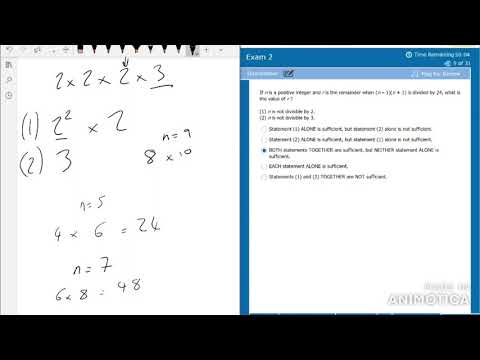 2 x 2 x 2 x 3
(1) 2² x 2
n = 9
(2) 3
8 x 10
n = 5
4 x 6 = 24
n = 7
6 x 8 = 48
Exam 2
Time Remaining 50:04
9 of 31
Flag for Review
If n is a positive integer and r is the remainder when (n − 1)(n + 1) is divided by 24, what is
the value of r ?
(1) n is not divisible by 2.
(2) n is not divisible by 3.
Statement (1) ALONE is sufficient, but statement (2) alone is not sufficient.
Statement (2) ALONE is sufficient, but statement (1) alone is not sufficient.
BOTH statements TOGETHER are sufficient, but NEITHER statement ALONE is
sufficient.
EACH statement ALONE is sufficient.
Statements (1) and (2) TOGETHER are NOT sufficient.
MADE IN
ANIMOTICA